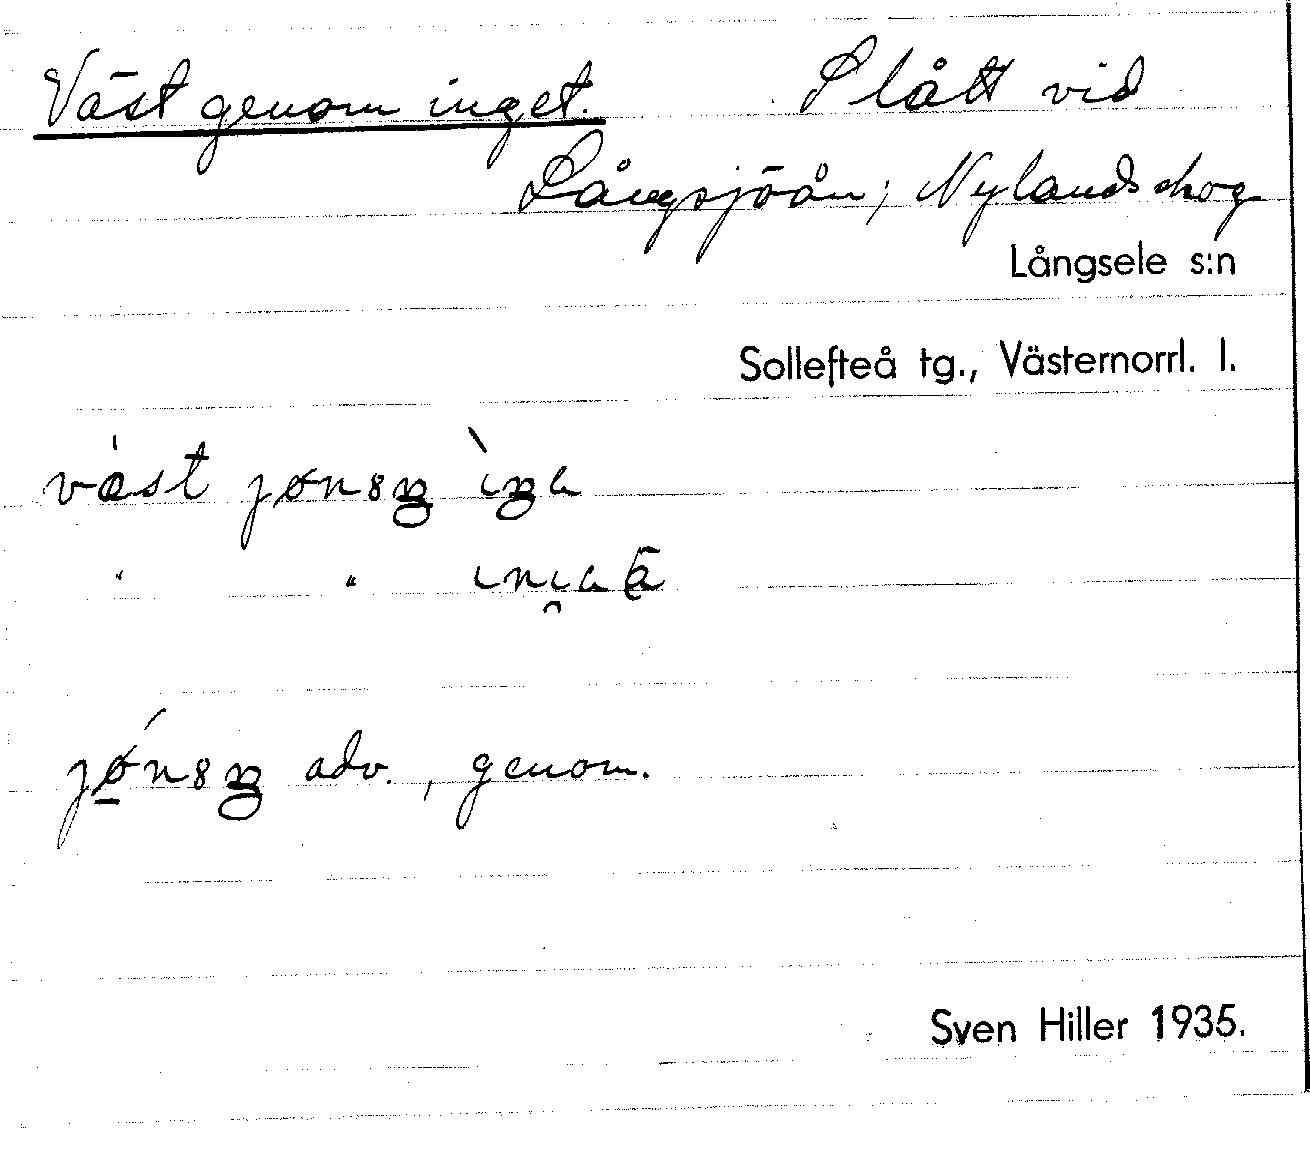 Väst genom inget. Slått vid
Långsjöån, Nylandskog
Långsele s:n
Sollefteå tg., Västernorrl. l.
adv., genom.
Sven Hiller 1935.